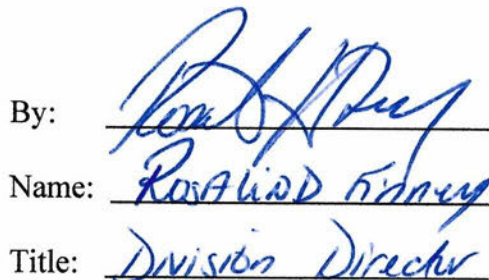 By:
Name: Rosalind Finney
Title: Division Director